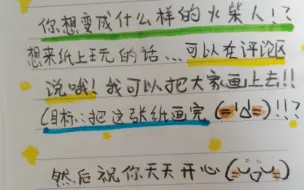 你想变成什么样的火柴人!?
想来纸上玩的话...可以在评论区
说哦! 我可以把大家画上去!!
(目标:把这张纸画完(=´∀`=)!?
然后祝你天天开心